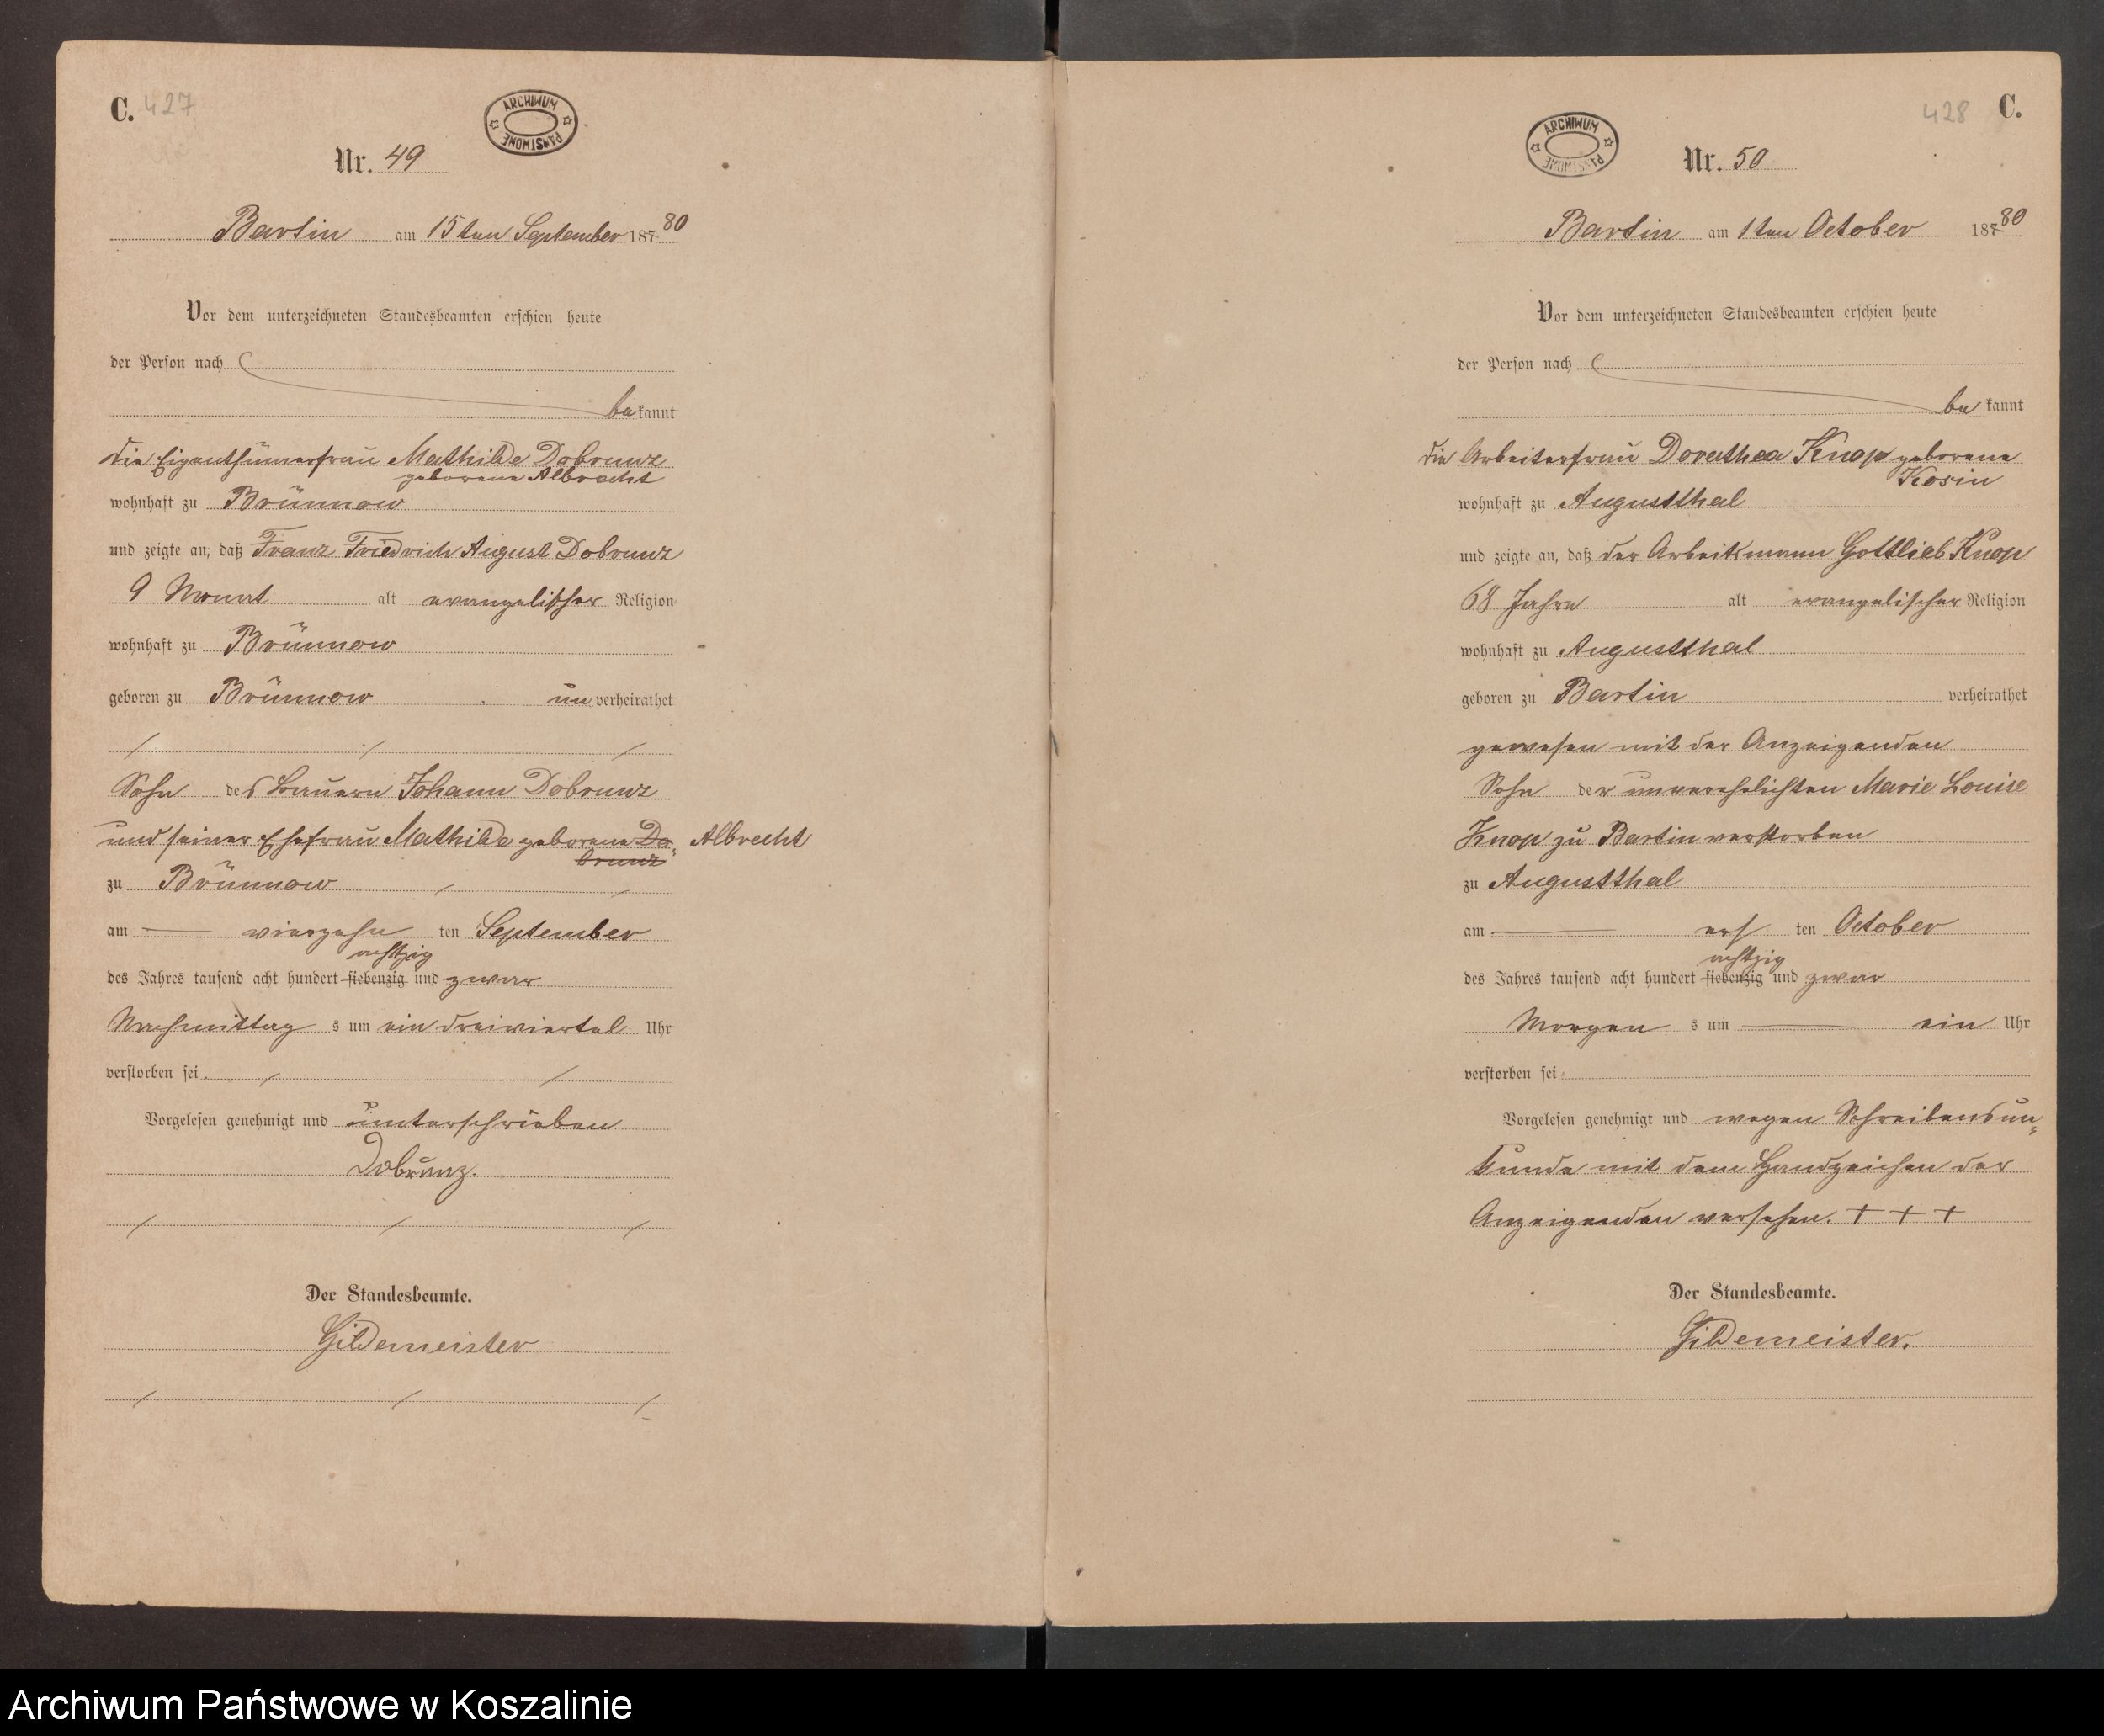 C. 427
ARCHIWUM PAŃSTWOWE
Nr. 49
Bartin am 15ten September 187 80
Vor dem unterzeichneten Standesbeamten erschien heute
der Person nach
be kannt
die Eigenthümerfrau Mathilde Dobrunz
geborene Albrecht
wohnhaft zu Brünnow
und zeigte an, daß Franz Friedrich August Dobrunz
9 Monat alt evangelischer Religion
wohnhaft zu Brünnow
geboren zu Brünnow un verheirathet
Sohn des Bauern Johann Dobrunz
und seiner Ehefrau Mathilde geborene Do- Albrecht
brunz
zu Brünnow
am vierzehn ten September
achtzig
des Jahres tausend acht hundert siebenzig und zwar
Nachmittag s um ein dreiviertel Uhr
verstorben sei.
Vorgelesen genehmigt und unterschrieben
Dobrunz.
Der Standesbeamte.
Gildemeister
428 C.
ARCHIWUM PAŃSTWOWE
Nr. 50
Bartin am 1ten October 187 80
Vor dem unterzeichneten Standesbeamten erschien heute
der Person nach
be kannt
die Arbeiterfrau Dorothea Knop geborene
Kosin
wohnhaft zu Augustthal
und zeigte an, daß der Arbeitsmann Gottlieb Knop
68 Jahre alt evangelischer Religion
wohnhaft zu Augustthal
geboren zu Bartin verheirathet
gewesen mit der Anzeigenden
Sohn der unverehelichten Marie Louise
Knop zu Bartin verstorben
zu Augustthal
am ers ten October
achtzig
des Jahres tausend acht hundert siebenzig und zwar
Morgen s um ein Uhr
verstorben sei.
Vorgelesen genehmigt und wegen Schreibensun-
kunde mit dem Handzeichen der
Anzeigenden versehen. + + +
Der Standesbeamte.
Gildemeister.
Archiwum Państwowe w Koszalinie